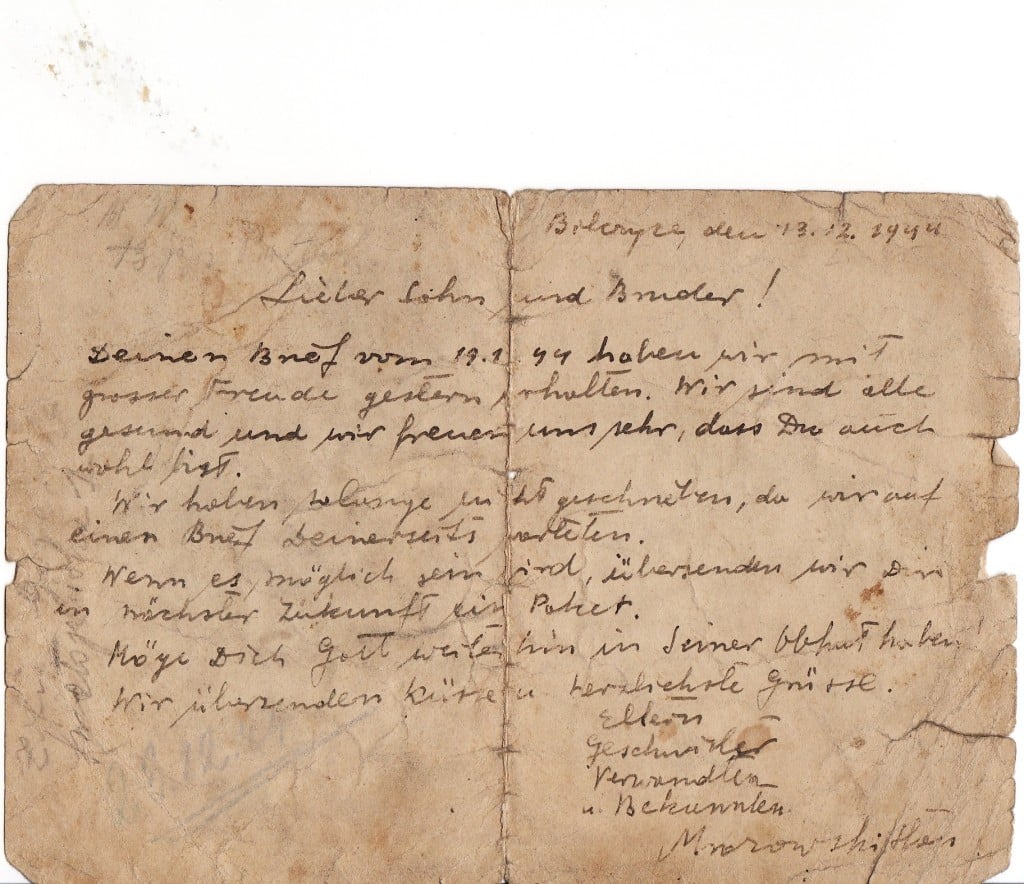 den 13.12.1944
Lieber Sohn und Bruder!
Deinen Brief vom 19.1 44 haben wir mit
grosser Freude gestern erhalten. Wir sind alle
gesund und wir freuen uns sehr, dass Du auch
wohl bist.
Wir haben solange nicht geschrieben, da wir auf
einen Brief Deinerseits warteten.
Wenn es möglich sein wird, übersenden wir Dir
in nächster Zukunft ein Paket.
Möge Dich Gott weiterhin in Seiner Obhut haben!
Wir übersenden Küsse u herzlichste Grüsse.
Eltern
Geschwister
Verwandten
u. Bekannten.